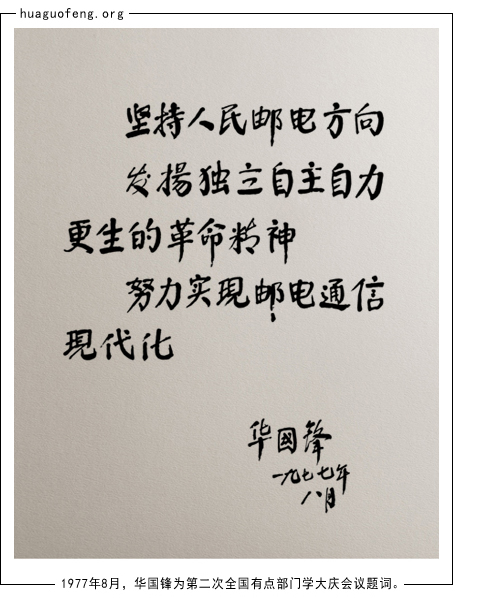 huaguofeng.org
坚持人民邮电方向
发揚独立自主自力
更生的革命精神
努力实现邮电通信
现代化
华國锋
一九七七年
八月
1977年8月，华国锋为第二次全国有点部门学大庆会议题词。